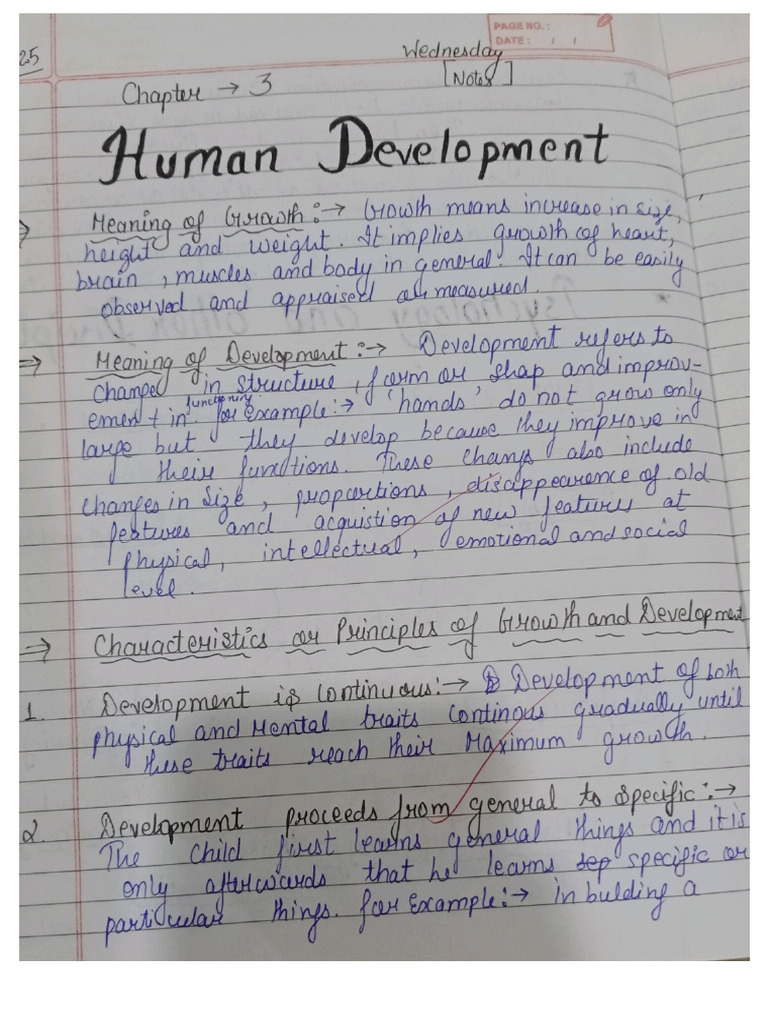 PAGE NO.:
DATE: / /
25
Wednesday
[Notes]
Chapter → 3
Human Development
⇒ Meaning of Growth :→ Growth means increase in size,
height and weight. It implies growth of heart,
brain, muscles and body in general. It can be easily
observed and appraised or measured.
⇒ Meaning of Development :→ Development refers to
Change in structure, form or shap and improv-
ement in functioning. for Example :→ 'hands' do not grow only
large but they develop because they improve in
their functions. These changs also include
Changes in Size, proportions, disappearance of old
features and acquistion of new features at
physical, intellectual, emotional and social
level.
⇒ Characteristics or Principles of Growth and Development
1. Development is Continuous :→ Development of both
physical and Mental traits Continous gradually until
these traits reach their Maximum growth.
2. Development proceeds from general to specific :→
The Child first learns general things and it is
only afterwards that he learns specific or
particular things. for Example :→ in bulding a